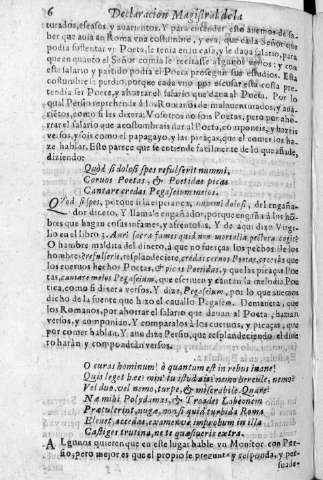 6 Declaracion Magistral de la
turados, escasos y auarientos. Y para entender esto auemos de sa-
ber que auia en Roma vna costumbre, y era, que cada Señor que
podia sustentar vn Poeta, le tenia en su casa, y le daua salario, para
que en quanto el Señor comia le recitasse algunos versos; y con
este salario y partido podia el Poeta proseguir sus estudios. Esta
costumbre se perdio, porque cada vno por escusar esta costa pre-
tendia ser Poeta, y ahorrar el salario que daua al Poeta. Por lo
qual Persio reprehende à los Romanos de malauenturados, y aua-
rientos, como si les dixera: Vosotros no sois Poetas, pero por aho-
rrar el salario que acostumbrais dar al Poeta, cõponeis, y hazeis
versos, y sois como el papagayo, y las picaças, que el comer los ha-
ze hablar. Esto parece que se entiende facilmente de lo que añade,
diziendo:
Quòd si dolosi spes refulserit nummi,
Coruos Poetas, & Poetidas picas
Cantare credas Pegaseium melos.
Quòd si spes, porque si la esperança, nummi dolosi, del engaña-
dor dinero, Y llamale engañador, porque engaña à los hõ-
bres que hagan cosas infames, y afrentosas. Y de aqui dize Virgi-
lio en el Libro 3. Auri sacra fames quid non mortalia pectora cogis?
O hambre maldita del dinero, à que no fuerças los pechos de los
hombres? refulserit, resplandeciere, credas coruos Poetas, creeràs que
los cueruos hechos Poetas, & picas Poetidas, y que las picaças Poe-
tas, cantare melos Pegaseium, que escriuen y cantan la melodia Poe-
tica, como si dixera versos. Y dize, Pegaseium, por lo que auemos
dicho de la fuente que hizo el cauallo Pegaseo. Demanera, que
los Romanos, por ahorrar el salario que dauan al Poeta, hazian
versos, y componian. Y comparalos à los cueruos, y picaças, que
por comer hablan. Y assi dize Persio, que resplandeciendo el dine-
ro haràn y compondràn versos.
O curas hominum! ò quantum est in rebus inane!
Quis leget hæc? min' tu istud ais? nemo hercule, nemo?
Vel duo, vel nemo, turpe, & miserabile. Quare?
Ne mihi Polydamas, & Troades Labeonem
Prætulerint, nugæ, non si quid turbida Roma
Eleuet, accedas, examenve improbum in illa
Castiges trutina, ne te quæsiueris extra.
Algunos quieren que en este lugar hable vn Monitor con Per-
sio, pero mejor es que el propio se pregunte y responda, y per-
suada